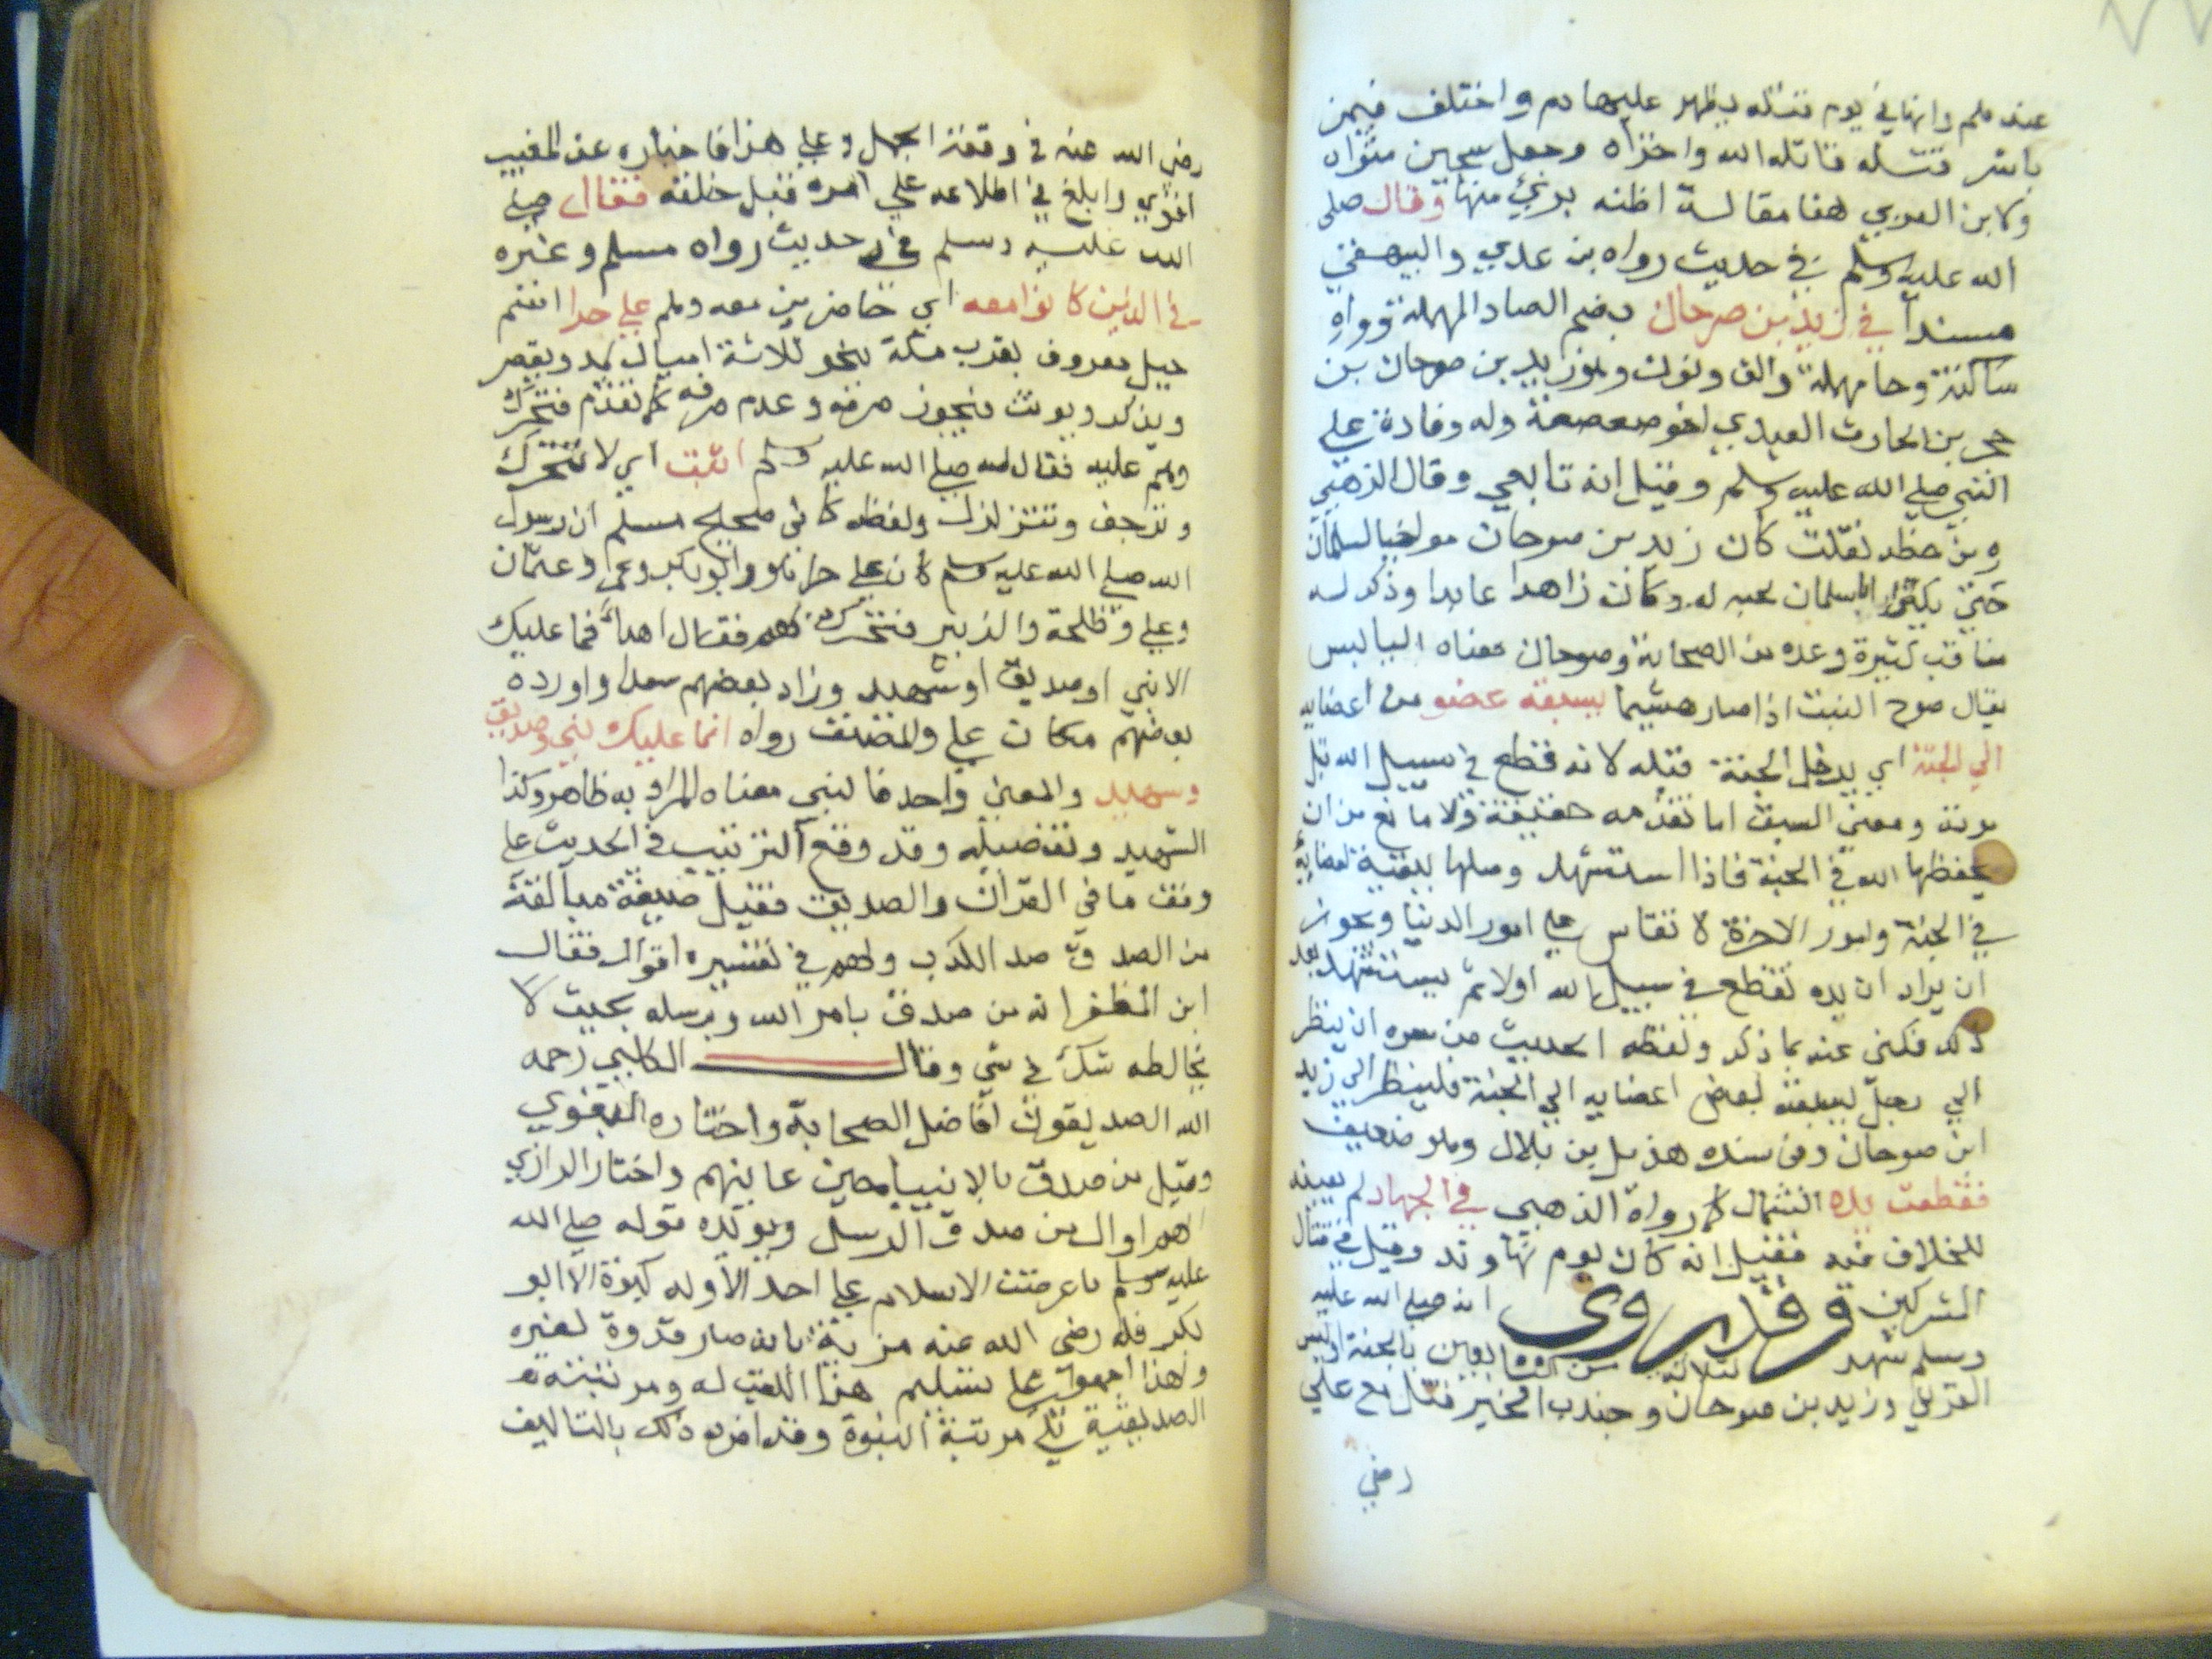 عنده علم وانها في يوم قتله يظهر عليها دم واختلف فيمن
باشر قتله قاتله الله واخزاه وجعل سجين مثواه
ولابن العربي هنا مقالة اظنه بري منها وقال صلى
الله عليه وسلم في حديث رواه بن عدي والبيهقي
مسندا في زيد بن صوحان بضم الصاد المهملة وواو
ساكنة وحا مهملة والف ونون وهو زيد بن صوحان بن
حجر بن الحارث العبدي اخو صعصعة وله وفادة على
النبي صلى الله عليه وسلم وقيل انه تابعي وقال الذهبي
ومن خطه نقلت كان زيد بن صوحان مواخيا لسلمان
حتى يكنى ابا سلمان لحبه له وكان زاهدا عابدا وذكر له
مناقب كثيرة وعده من الصحابة وصوحان معناه اليابس
يقال صوح النبت اذا صار هشيما يسبقه عضو من اعضايه
الى الجنة اي يدخل الجنة قبله لانه قطع في سبيل الله قبل
موته ومعنى السبق اما تقدمه حقيقة ولا مانع من ان
يحفظها الله في الجنة فاذا استشهد وصلها ببقية اعضايه
في الجنة وامور الاخرة لا تقاس على امور الدنيا ويجوز
ان يراد ان يده تقطع في سبيل الله اولا ثم يستشهد بعد
ذلك فكنى عنه بما ذكر ولفظه الحديث من سره ان ينظر
الى رجل يسبقه بعض اعضايه الى الجنة فلينظر الى زيد
ابن صوحان وفى سنده هذيل بن بلال وهو ضعيف
فقطعت يده الشمال كما رواه الذهبي في الجهاد لم يعينه
للخلاف فيه فقيل انه كان يوم نهاوند وقيل في قتال
المشركين وقد روى انه صلى الله عليه
وسلم شهد لثلاثة من التابعين بالجنة اويس
القرني وزيد بن صوحان وجندب الخير قتل مع علي
رضي
رضي الله عنه في وقعة الجمل وعلى هذا فاخباره عن المغيب
اقوي وابلغ في اطلاعه على امره قبل خلقه فقال صلى
الله عليه وسلم في حديث رواه مسلم وغيره
في الذين كانوا معه اي حاضرين معه وهم على حرا انتم
جبل معروف بقرب مكة نحو ثلاثة اميال يمد ويقصر
ويذكر ويونث فيجوز صرفه وعدم صرفه كما تقدم فتحرك
وهم عليه فقال له صلى الله عليه وسلم اثبت اي لا تتحرك
وترجف وتتزلزل ولفظه كما في صحيح مسلم ان رسول
الله صلى الله عليه وسلم كان على حرا هو وابو بكر وعمر وعثمان
وعلي وطلحة والزبير فتحركت بهم فقال اهدأ فما عليك
الا نبي او صديق او شهيد وزاد بعضهم سعدا واورده
بعضهم مكان علي والمصنف رواه انما عليك نبي وصديق
وشهيد والمعنى واحد فالنبي معناه المراد به ظاهر وكذا
الشهيد وتفضيله وقد وقع الترتيب في الحديث على
وفق ما في القران والصديق فقيل صيغة مبالغة
من الصدق ضد الكذب ولهم في تفسيره اقوال فقال
ابن المظفر انه من صدق بامر الله وبرسله بحيث لا
يخالطه شك في شي وقال الكلبي رحمه
الله الصديقون افاضل الصحابة واختاره البغوي
وقيل من صدق بالانبيا حين عاينهم واختار الرازي
انهم اوال من صدق الرسل ويويده قوله صلى الله
عليه وسلم ما عرضت الاسلام على احد الا وله كبوة الا ابو
بكر فله رضي الله عنه مزية بانه صار قدوة لغيره
ولهذا اجمعوا على تسليم هذا اللقب له ومرتبته
الصديقية تلي مرتبة النبوة وقد افرد ذلك بالتاليف